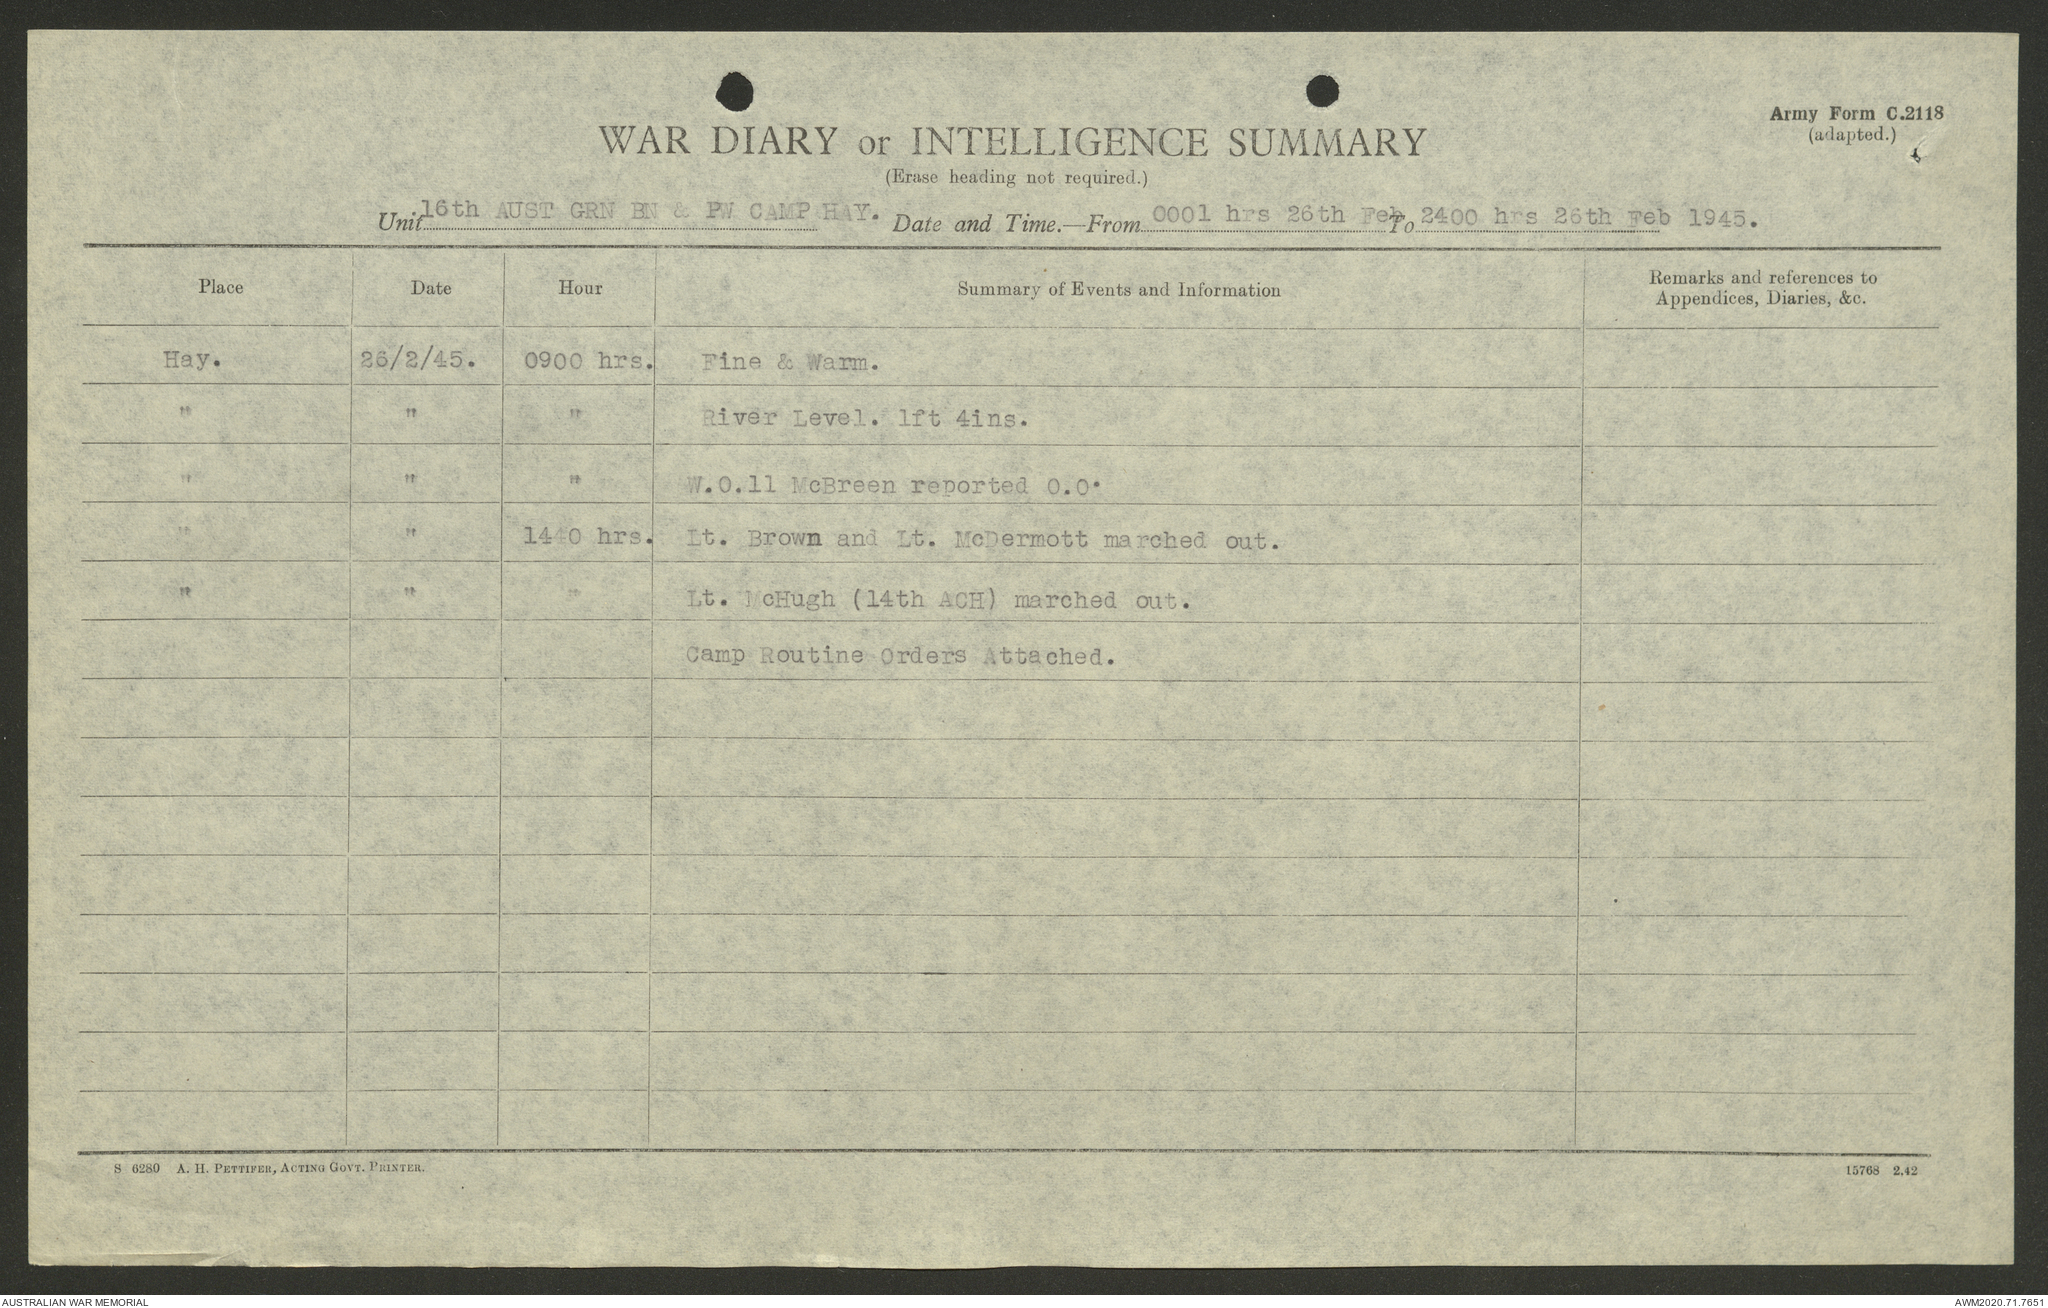 Army Form C.2118
(adapted.)
WAR DIARY or INTELLIGENCE SUMMARY
(Erase heading not required.)
Unit 16th AUST GRN BN & PW CAMP HAY. Date and Time.—From 0001 hrs 26th Feb To 2400 hrs 26th Feb 1945.
Place Date Hour Summary of Events and Information Remarks and references to
Appendices, Diaries, &c.
Hay. 26/2/45. 0900 hrs. Fine & Warm.
" " " River Level. 1ft 4ins.
" " " W.O.11 McBreen reported O.O.
" " 1440 hrs. Lt. Brown and Lt. McDermott marched out.
" " " Lt. McHugh (14th ACH) marched out.
Camp Routine Orders Attached.
S 6280 A. H. PETTIFER, ACTING GOVT. PRINTER.
15768 2.42
AUSTRALIAN WAR MEMORIAL
AWM2020.71.7651